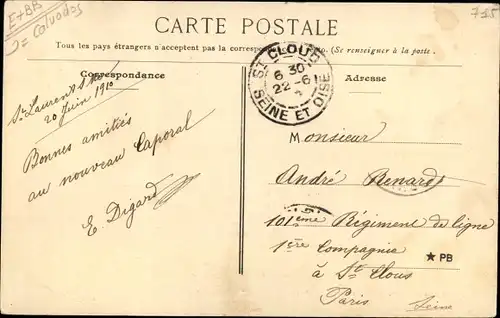 E+BB
= Calvados
795
CARTE POSTALE
Tous les pays étrangers n'acceptent pas la correspondance au recto. (Se renseigner à la poste.
Correspondance
Adresse
ST CLOUD
6 30
22-6
SEINE ET OISE
St Laurent s/
20 Juin 1910
Bonnes amitiés
au nouveau Caporal
E. Digard
Monsieur
André Renard
101ème Régiment de ligne
1ère Compagnie
★ PB
à St Clous
Paris
Seine